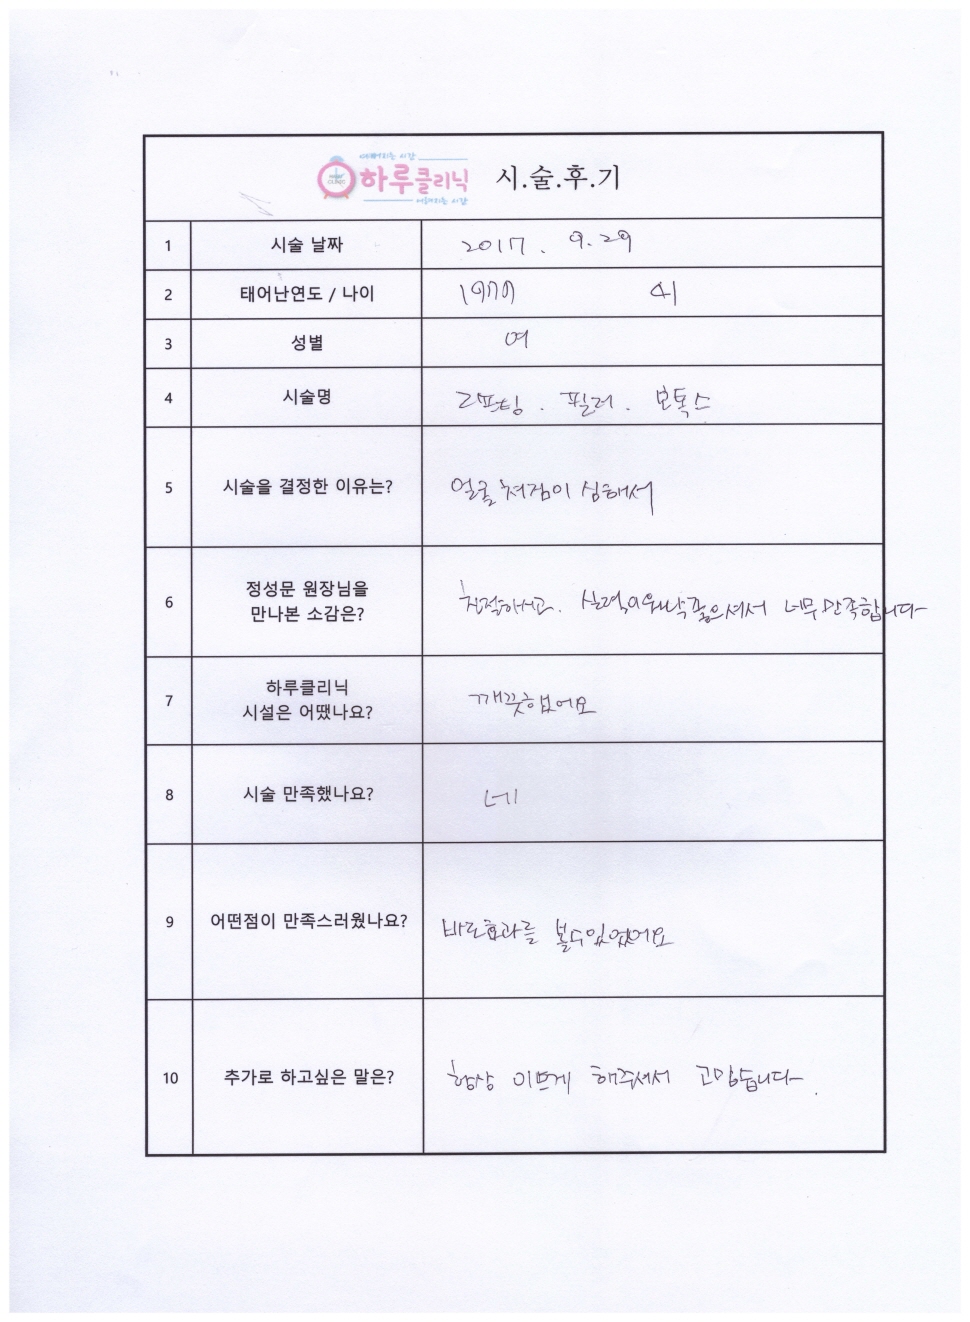 예뻐지는 시간
하루클리닉
어려지는 시간
시.술.후.기
1 시술 날짜 2017. 9. 29
2 태어난연도 / 나이 1977 41
3 성별 여
4 시술명 리프팅. 필러. 보톡스
5 시술을 결정한 이유는? 얼굴 쳐짐이 심해서
6 정성문 원장님을
만나본 소감은? 친절하시고. 실력이워낙좋으셔서 너무만족합니다
7 하루클리닉
시설은 어땠나요? 깨끗했어요
8 시술 만족했나요? 네
9 어떤점이 만족스러웠나요? 바로효과를 볼수있었어요
10 추가로 하고싶은 말은? 항상 이쁘게 해주셔서 고맙습니다.